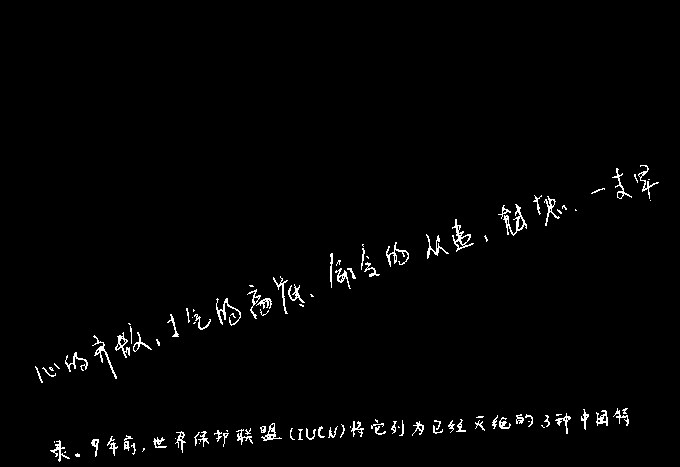 心的齐散,士气的高低、命令的从违,就想、一支军
录。9年前,世界保护联盟(IUCN)将它列为已经灭绝的3种中国特